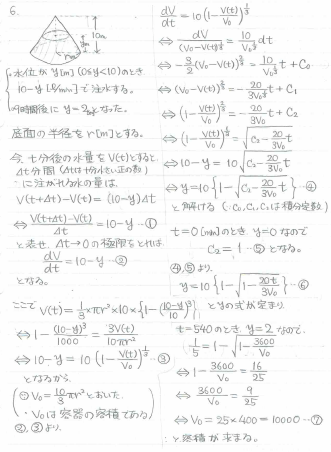 6.
10m
ym
rm
水位が y[m] (0≤y<10)のとき
10-y [m³/min] で注水する。
9時間後に y=2m になった。
底面の半径を r[m]とする。
今、t分後の水量を V(t)とすると、
Δt分間 (Δtは十分小さい正の数)
に注がれる水の量は
V(t+Δt)-V(t)=(10-y)Δt
⇔ V(t+Δt)-V(t)/Δt = 10-y …①
と表せ、Δt→0 の極限をとれば
dV/dt = 10-y …②
となる。
ここで V(t)=1/3 πr²×10×{1-((10-y)/10)³}
⇔ 1-(10-y)³/1000 = 3V(t)/10πr²
⇔ 10-y = 10(1-V(t)/V₀)^{1/3} …③
となるから
(∵ V₀=10/3 πr² とおいた.
・V₀は容器の容積である)
②,③より.
dV/dt = 10(1-V(t)/V₀)^{1/3}
⇔ dV/(V₀-V(t))^{1/3} = 10/V₀^{1/3} dt
⇔ -3/2 (V₀-V(t))^{2/3} = 10/V₀^{1/3} t + C₀
⇔ (V₀-V(t))^{2/3} = -20/3V₀^{1/3} t + C₁
⇔ (1-V(t)/V₀)^{2/3} = -20/3V₀ t + C₂
⇔ (1-V(t)/V₀)^{1/3} = √(C₂-20/3V₀ t)
⇔ 10-y = 10√(C₂-20/3V₀ t)
⇔ y=10{1-√(C₂-20/3V₀ t)} …④
と解ける (∵C₀,C₁,C₂は積分定数)
t=0[min]のとき、y=0なので
C₂=1 …⑤となる。
④,⑤より
y=10{1-√(1-20t/3V₀)} …⑥
とyの式が定まり、
t=540のとき、y=2なので、
1/5 = 1-√(1-3600/V₀)
⇔ 1-3600/V₀ = 16/25
⇔ 3600/V₀ = 9/25
⇔ V₀ = 25×400 = 10000 …⑦
と容積が求まる。